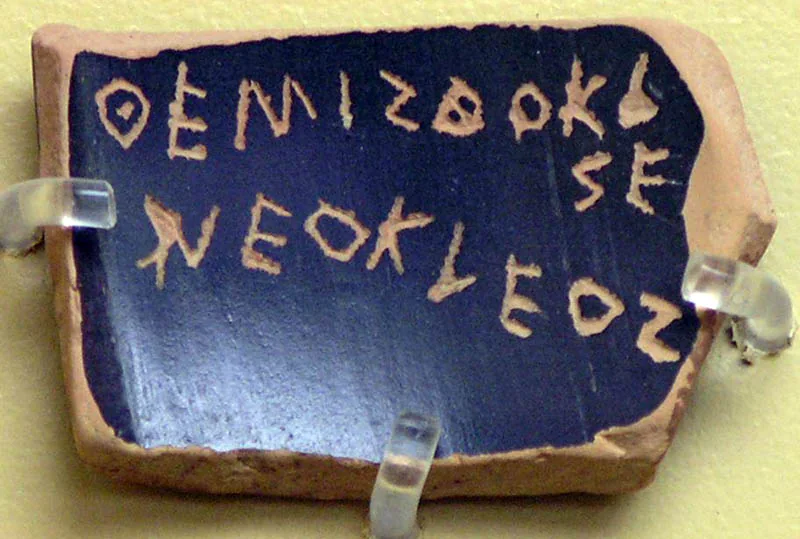 ΘΕΜΙΣΘΟΚΛ
ΕΣ
ΝΕΟΚΛΕΟΣ